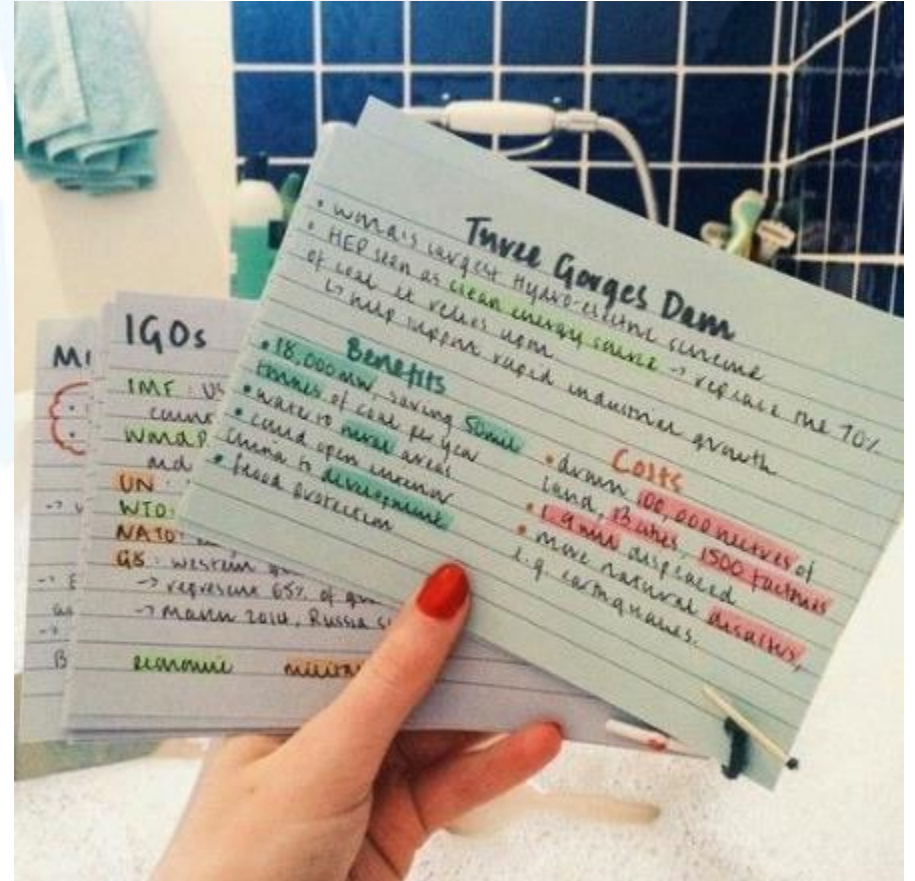 Three Gorges Dam
• World's largest Hydro-electric scheme
• HEP seen as clean energy source → replace the 70%
of coal it relies upon
↳ help support rapid industrial growth
Benefits
• 18,000mw, saving 50mil
tonnes of coal per year
• water to rural areas
• could open interior
China to development
• flood protection
Costs
• drown 100,000 hectares of
land, 13 cities, 1500 factories
• 1.9mil displaced
• more natural disasters,
e.g. earthquakes.
IGOs
IMF: US
and
UN:
WTO:
NATO:
G8: western
→ represent 65% of
→ March 2014, Russia
economic
MI
B